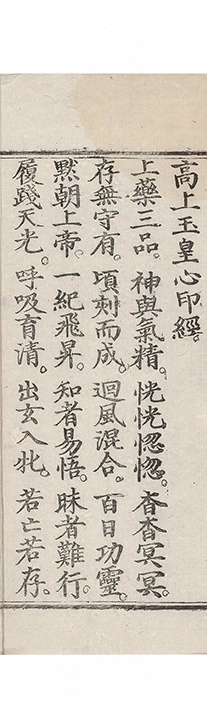 高上玉皇心印經。
上藥三品。神與氣精。恍恍惚惚。杳杳冥冥。
存無守有。頃刻而成。迴風混合。百日功靈。
默朝上帝。一紀飛昇。知者易悟。昧者難行。
履踐天光。呼吸育清。出玄入牝。若亡若存。